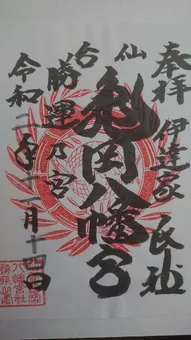 奉拝 伊達家氏社
仙台
亀岡八幡宮
勝運乃宮
令和二年月十四日